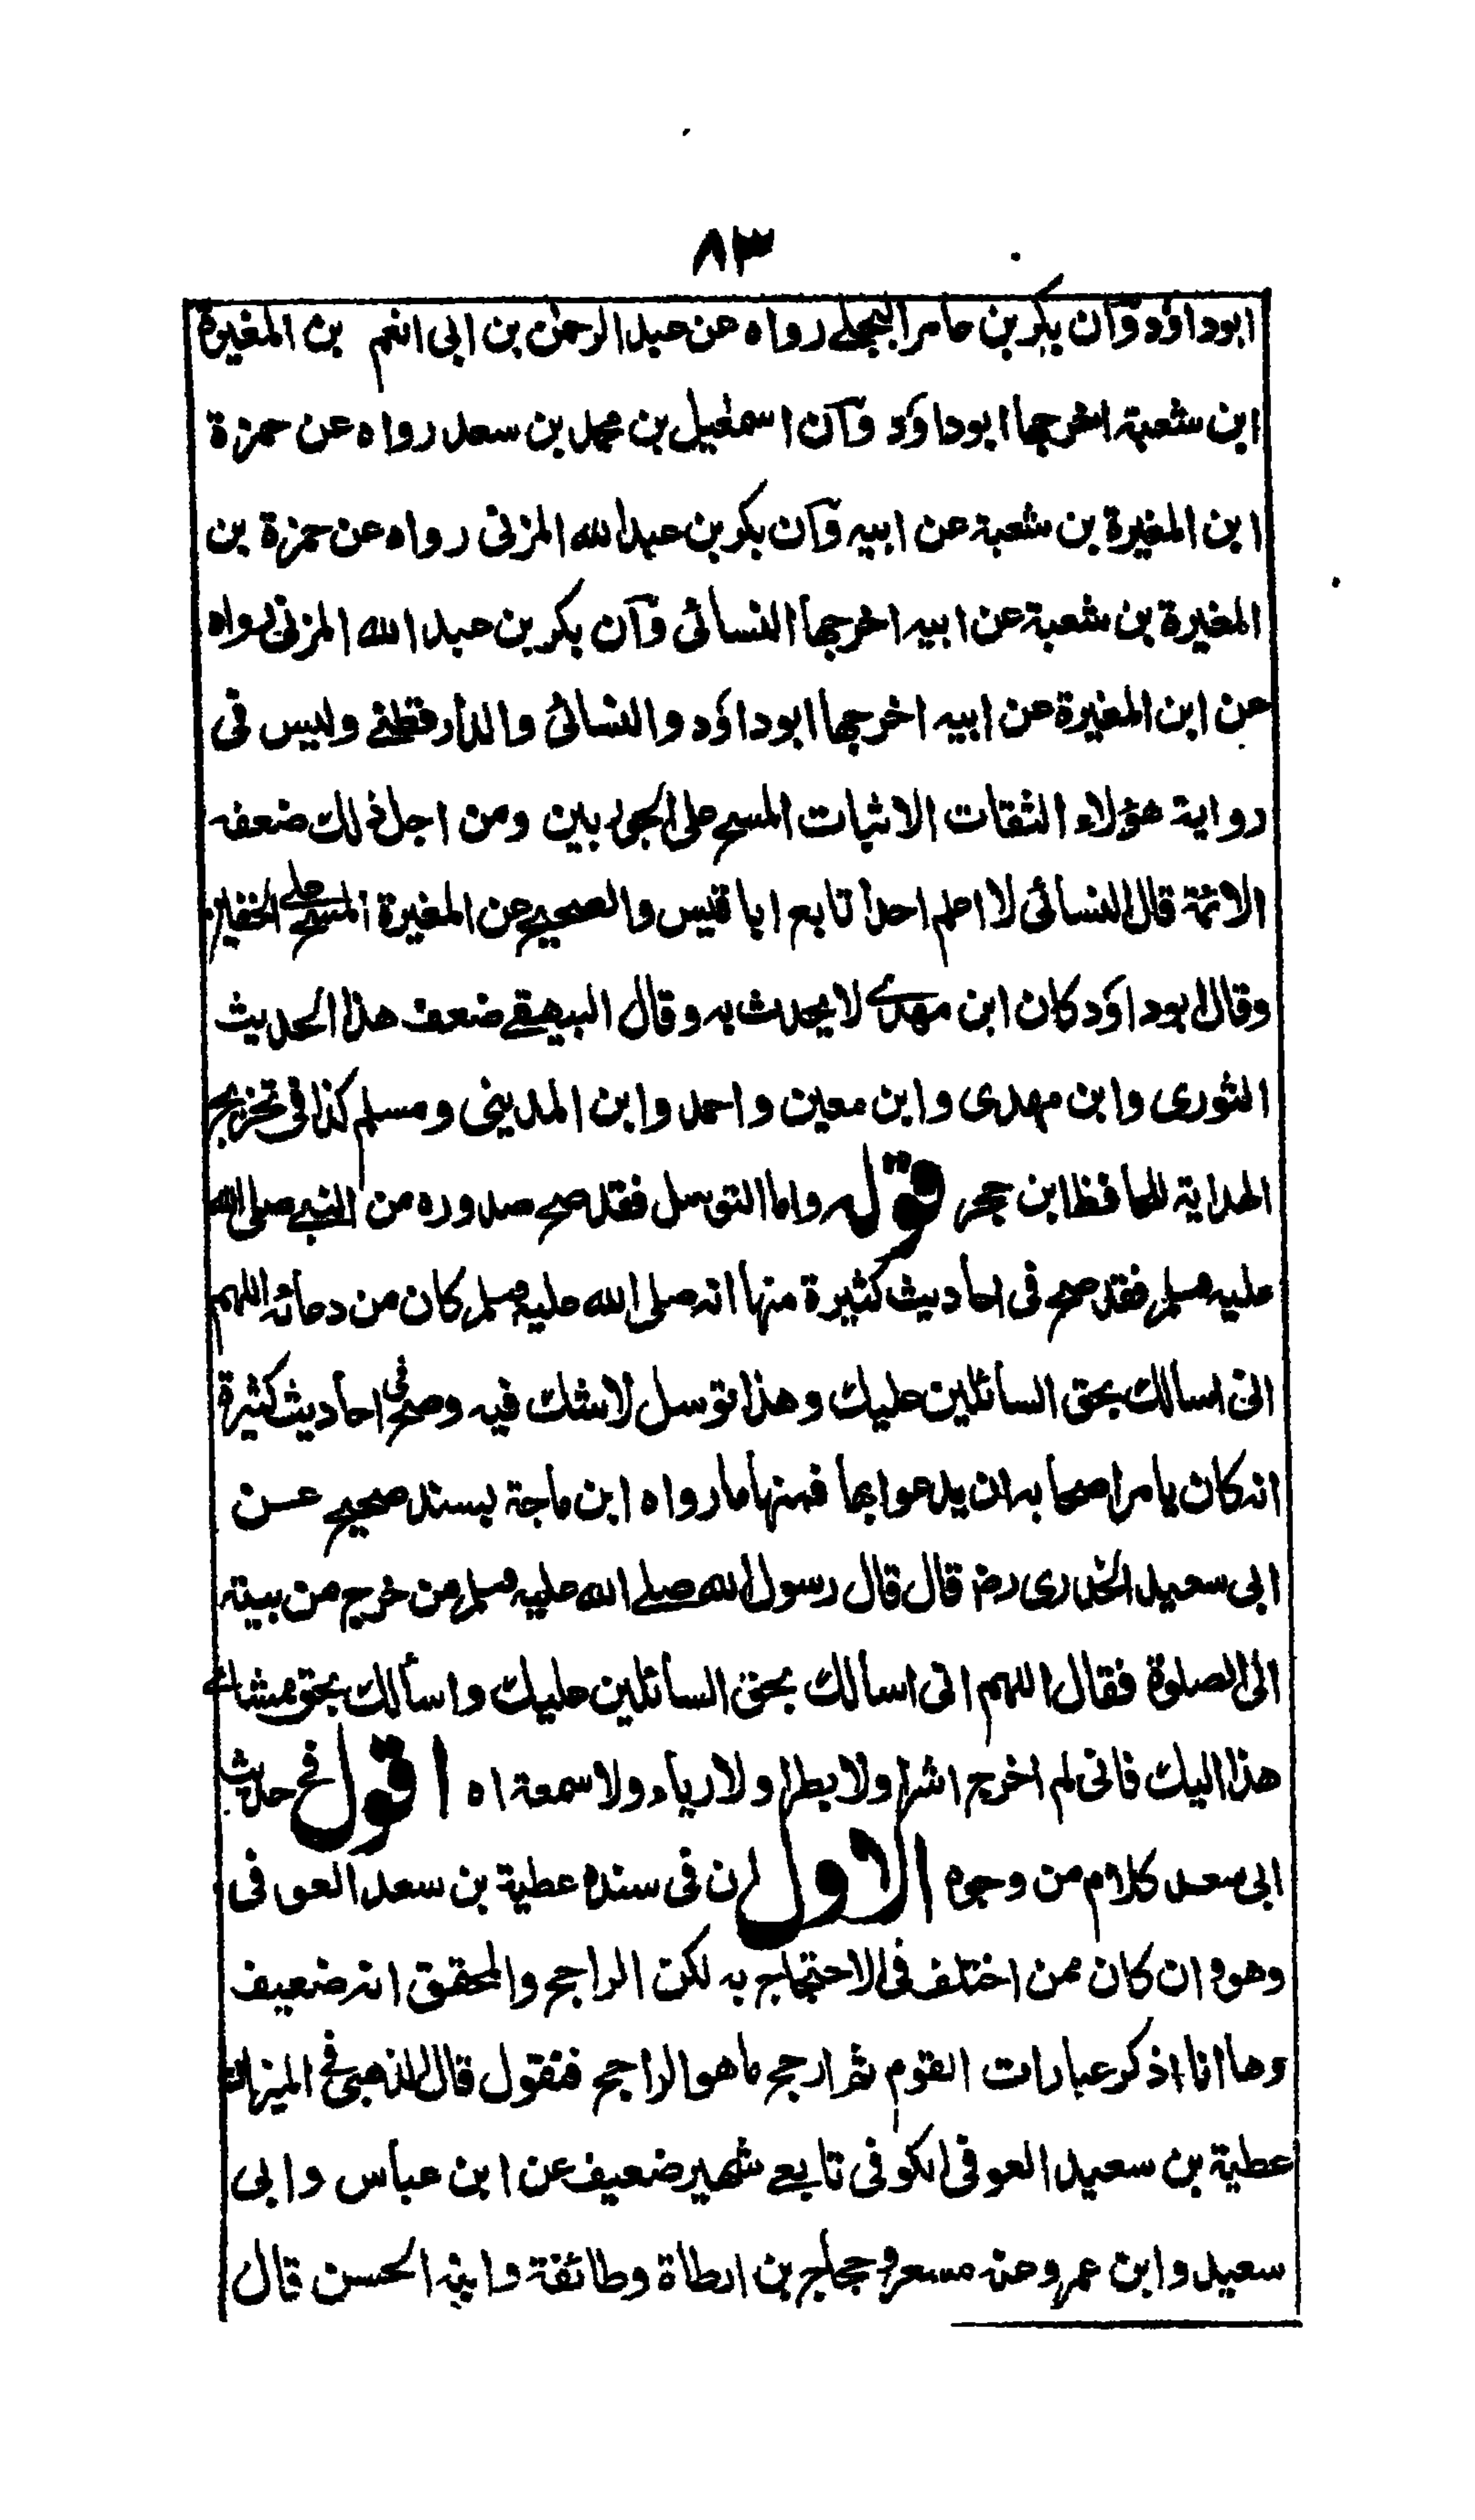 ٨٣
ابوداؤد وآن بكر بن عامر البجلے رواه عن عبد الرحمٰن بن ابى انعم بن المغيرة
ابن شعبة اخرجها ابوداؤد وآن اسمٰعيل بن محمد بن سعد رواه عن حمزة
ابن المغيرة بن شعبة عن ابيه وآن بكر بن عبدالله المزنى رواه عن حمزة بن
المغيرة بن شعبة عن ابيه اخرجهما النسائى وآن بكر بن عبد الله المزنى رواه
عن ابن المغيرة عن ابيه اخرجها ابوداؤد والنسائى والدارقطنے وليس فى
رواية هؤلاء الثقات الاثبات المسح على الجوربين ومن اجل ذلك ضعفه
الائمة قال النسائى لا اعلم احدا تابع ابا قيس والصحيح عن المغيرة المسح على الخفين
وقال ابوداؤد كان ابن مهدے لا يحدث به وقال البيهقے ضعف هذا الحديث
الثورى وابن مهدى وابن معين واحمد وابن المدينى ومسلم كذا فى تخريج
الهداية للحافظ ابن حجر قوله واما التوسل فقد صح صدوره من النبے صلى الله
عليه وسلم فقد صح فى احاديث كثيرة منها انه صلى الله عليه وسلم كان من دعائه اللهم
انى اسالك بحق السائلين عليك وهذا توسل لاشك فيه وصح فى احاديث كثيرة
انه كان يامر اصحابه ان يدعوا بها فمنها ما رواه ابن ماجة بسند صحيح عسن
ابى سعيد الخدرى رض قال قال رسول الله صلے الله عليه وسلم من خرج من بيته
الى الصلوة فقال اللهم انى اسالك بحق السائلين عليك واسألك بحق ممشاے
هذا اليك فانى لم اخرج اشرا ولا بطرا ولا رياء ولا سمعة اه اقول فى حديث
ابى سعد كلام من وجوه الاول ان فى سنده عطية بن سعد العوفى
وهو وان كان ممن اختلف فى الاحتجاج به لكن الراجح والمحقق انه ضعيف
وها انا اذكر عبارات القوم ثم ارجح ما هو الراجح فنقول قال الذهبى فى الميزان
عطية بن سعيد العوفى الكوفى تابعے شهير ضعيف عن ابن عباس وابى
سعيد وابن عمر وعنه مسعر وحجاج بن ارطاة وطائفة وابنه الحسن قال